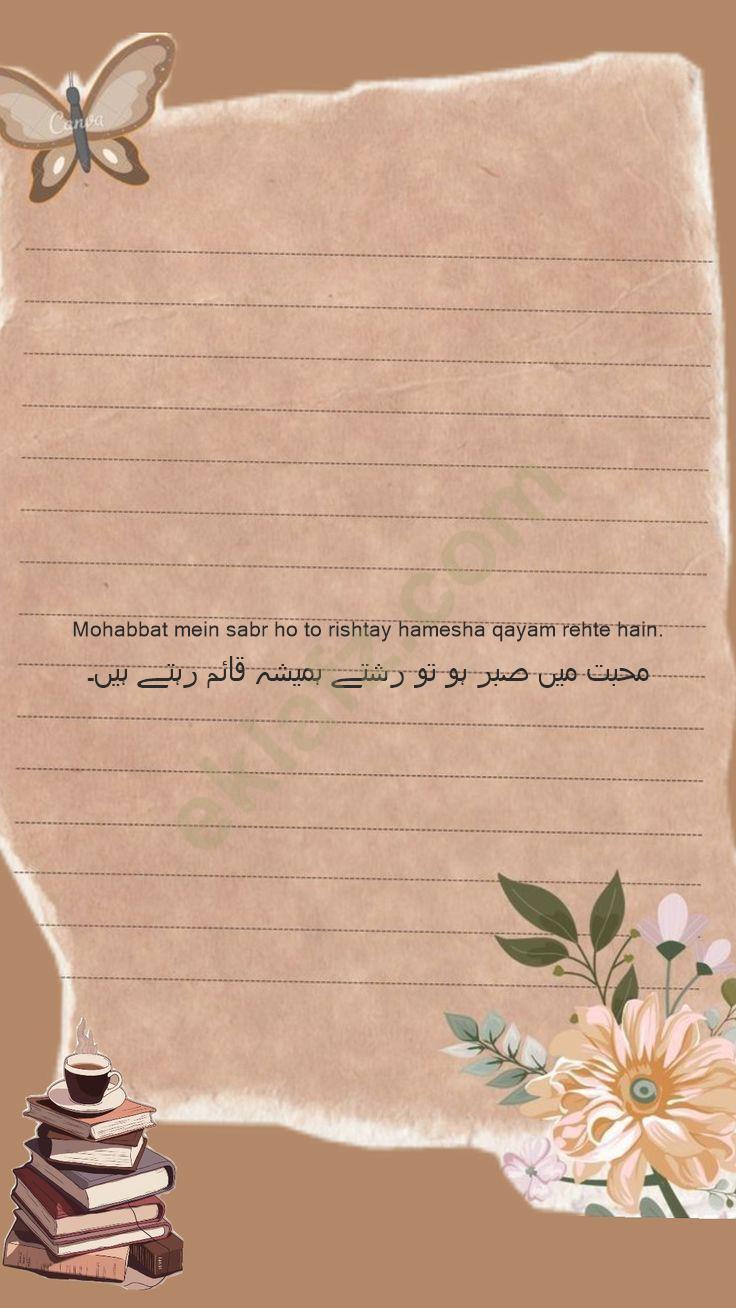 Canva
Mohabbat mein sabr ho to rishtay hamesha qayam rehte hain.
محبت میں صبر ہو تو رشتے ہمیشہ قائم رہتے ہیں۔
eklafz.com